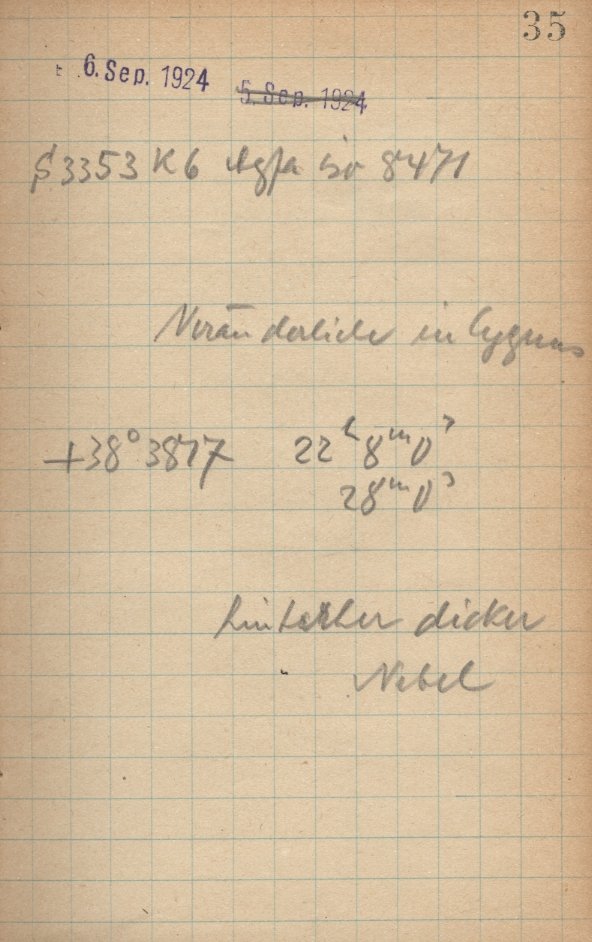 35
6. Sep. 1924 5. Sep. 1924
S 3353 K6 Agfa iso 8471
Veränderliche in Cygnus
+38° 3877 22ʰ 8ᵐ 0ˢ
28ᵐ 0ˢ
hinterher dicker
Nebel